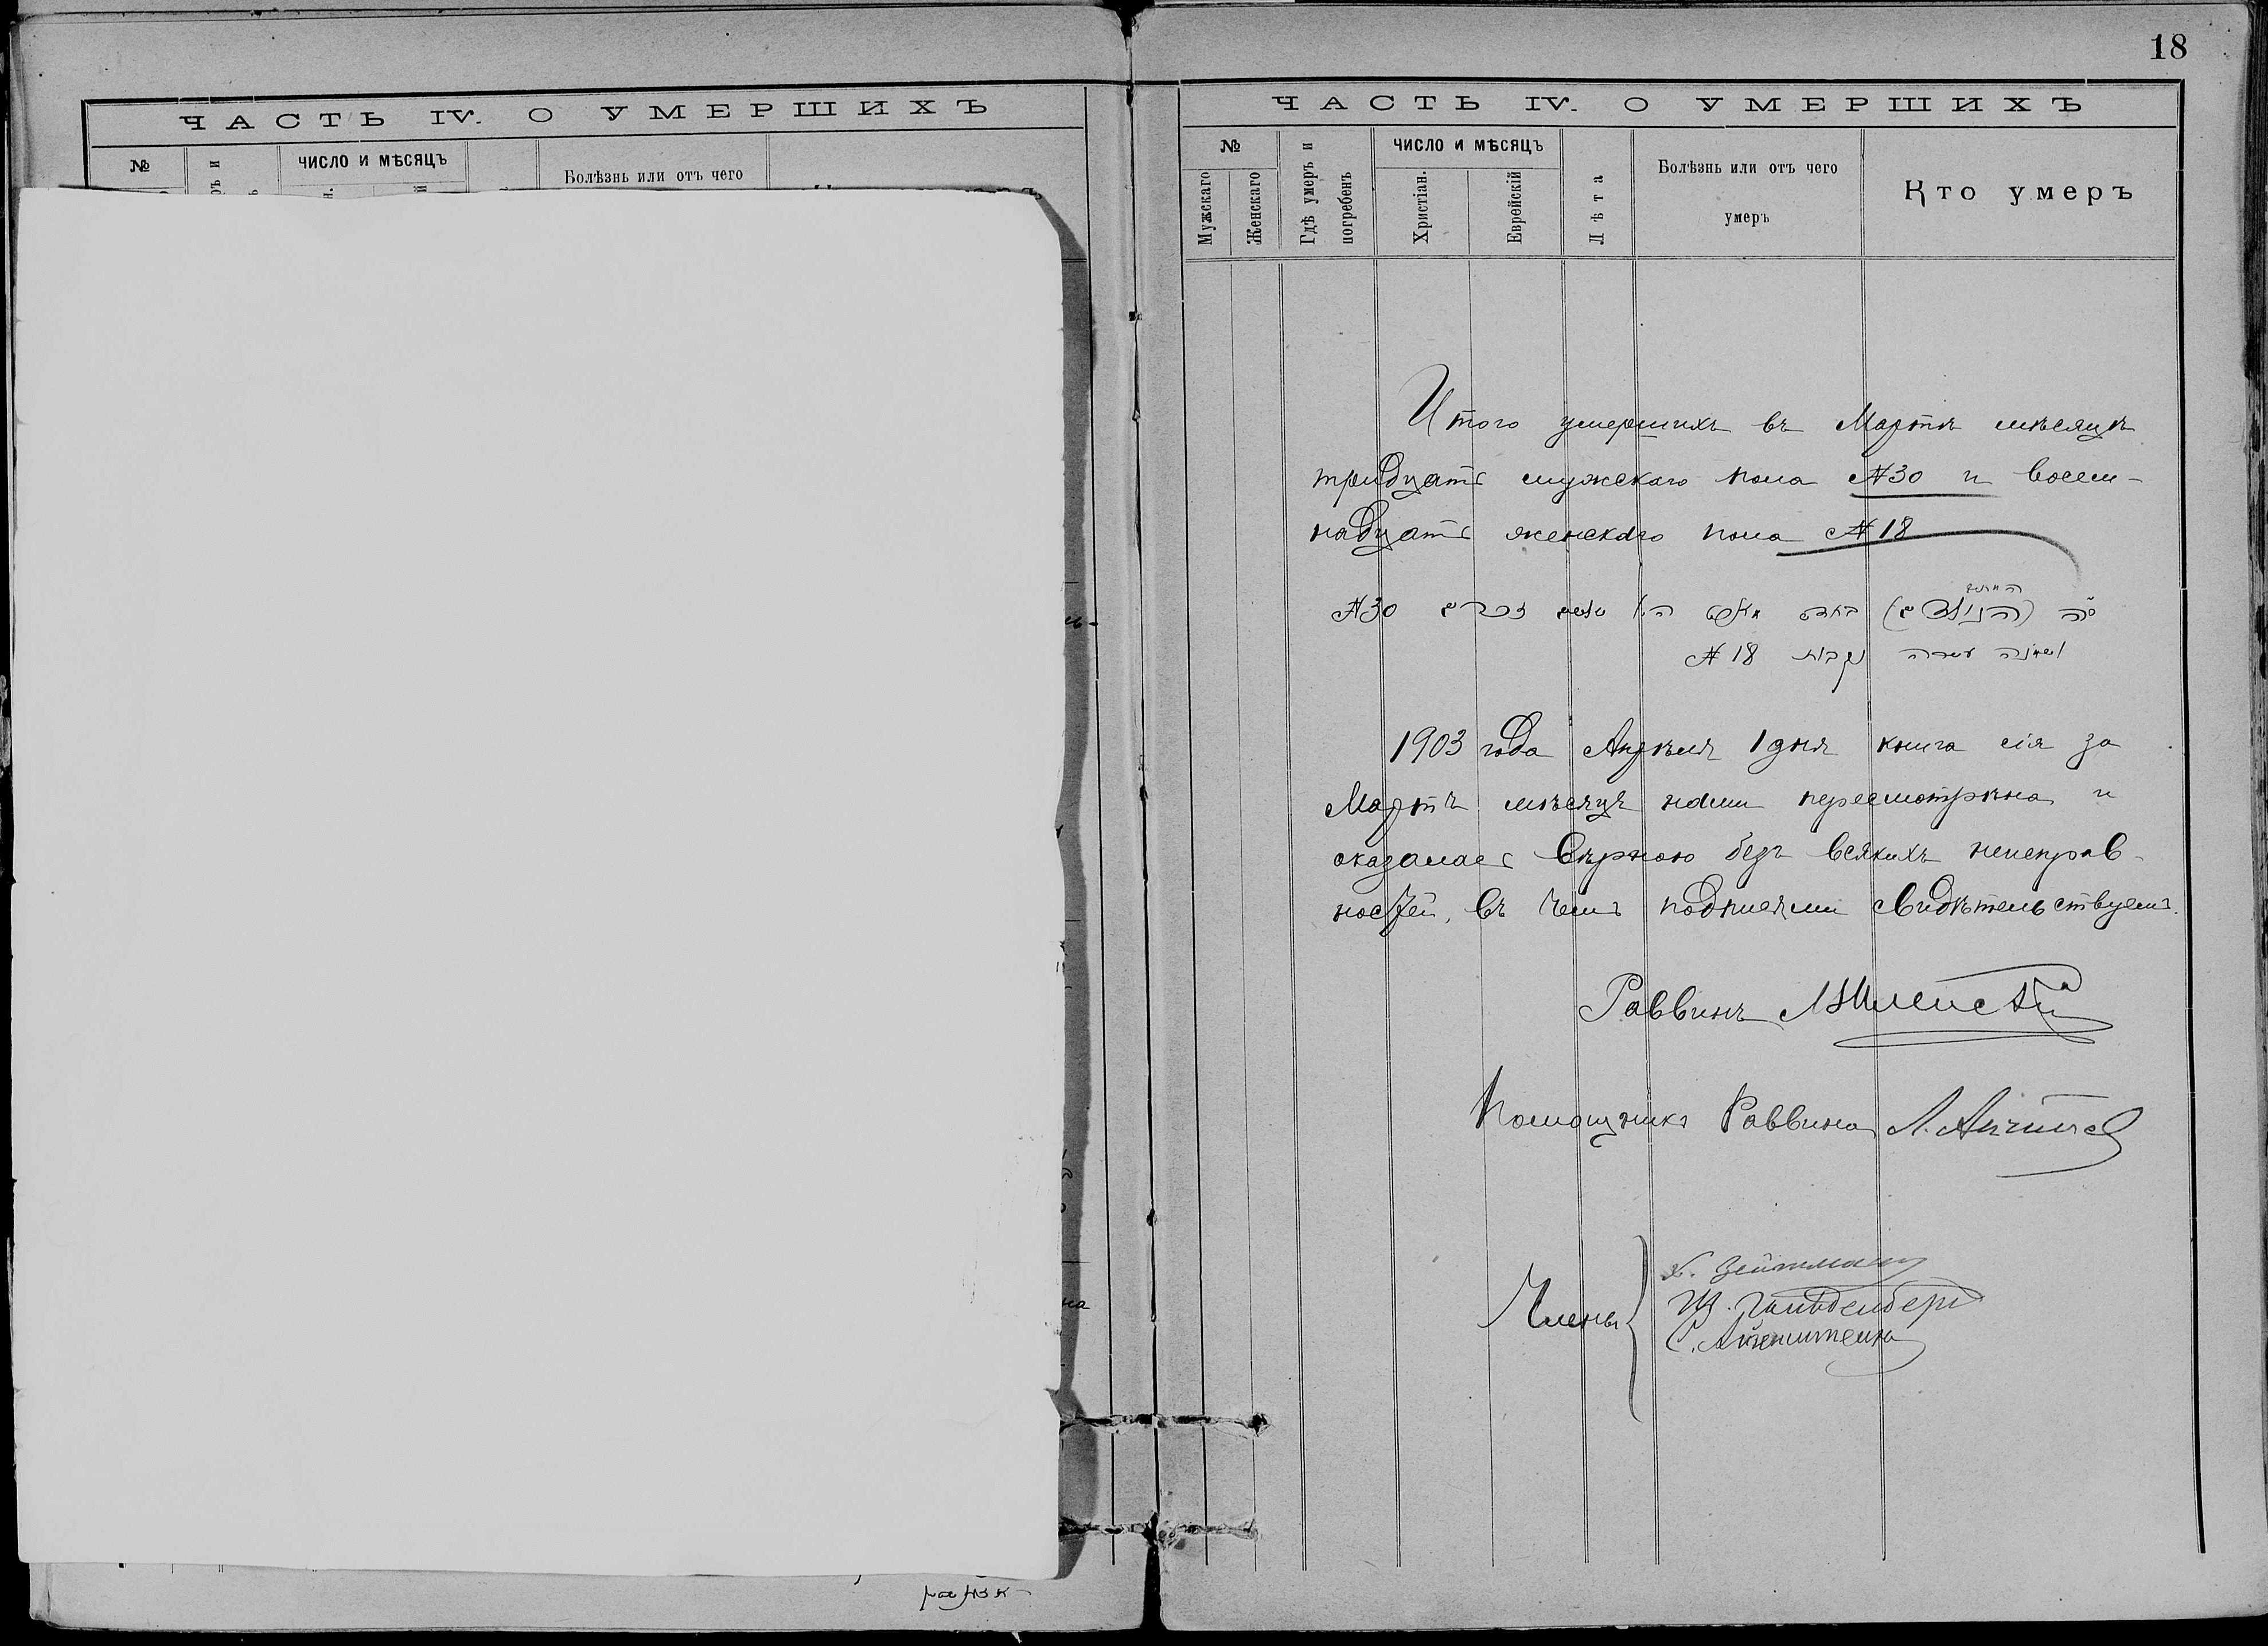 ЧАСТЬ IV. О УМЕРШИХЪ
№
ЧИСЛО И МѢСЯЦЪ
Болѣзнь или отъ чего
18
ЧАСТЬ IV. О УМЕРШИХЪ
№
Мужскаго
Женскаго
Гдѣ умеръ и погребенъ
ЧИСЛО И МѢСЯЦЪ
Христіан.
Еврейскій
Лѣта
Болѣзнь или отъ чего
умеръ
Кто умеръ
Итого умершихъ въ Мартѣ мѣсяцѣ
тридцать мужскаго пола №30 и восем-
надцать женскаго пола №18
זכרים №30
ושמונה עשרה נקבות №18
1903 года Апрѣля 1 дня книга сія за
Мартъ мѣсяцъ нами пересмотрѣна и
оказалась вѣрною безъ всякихъ неисправ-
ностей, въ чемъ подписями свидѣтельствуемъ.
Раввинъ
Помощникъ Раввина Л.
Члены
Х. Зейтманъ
Ш. Гольденбергъ
С.